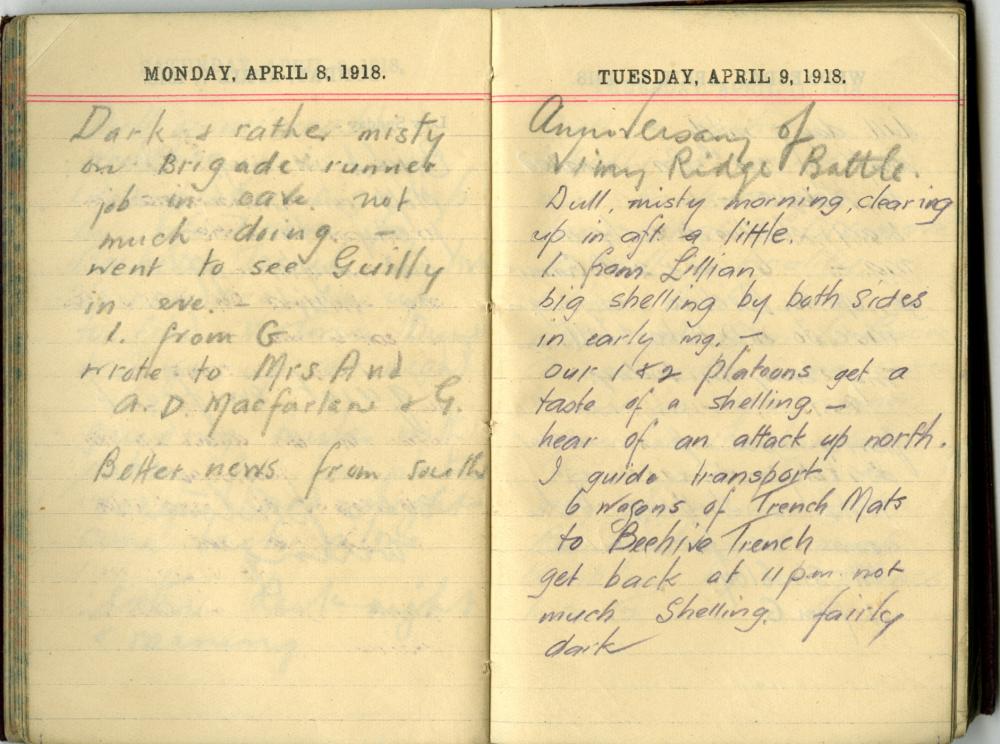 MONDAY, APRIL 8, 1918.
Dark & rather misty
on Brigade runner
job in cave. not
much doing. –
went to see Guilly
in eve.
l. from G
wrote to Mrs And
A.D. Macfarlane & G.
Better news from south
TUESDAY, APRIL 9, 1918.
Anniversary of
Vimy Ridge Battle.
Dull, misty morning, clearing
up in aft a little.
l. from Lillian
big shelling by both sides
in early mg. –
our 1 & 2 platoons get a
taste of a shelling. –
hear of an attack up north.
I guide transport
6 wagons of Trench Mats
to Beehive Trench
get back at 11 pm. not
much Shelling. fairly
dark